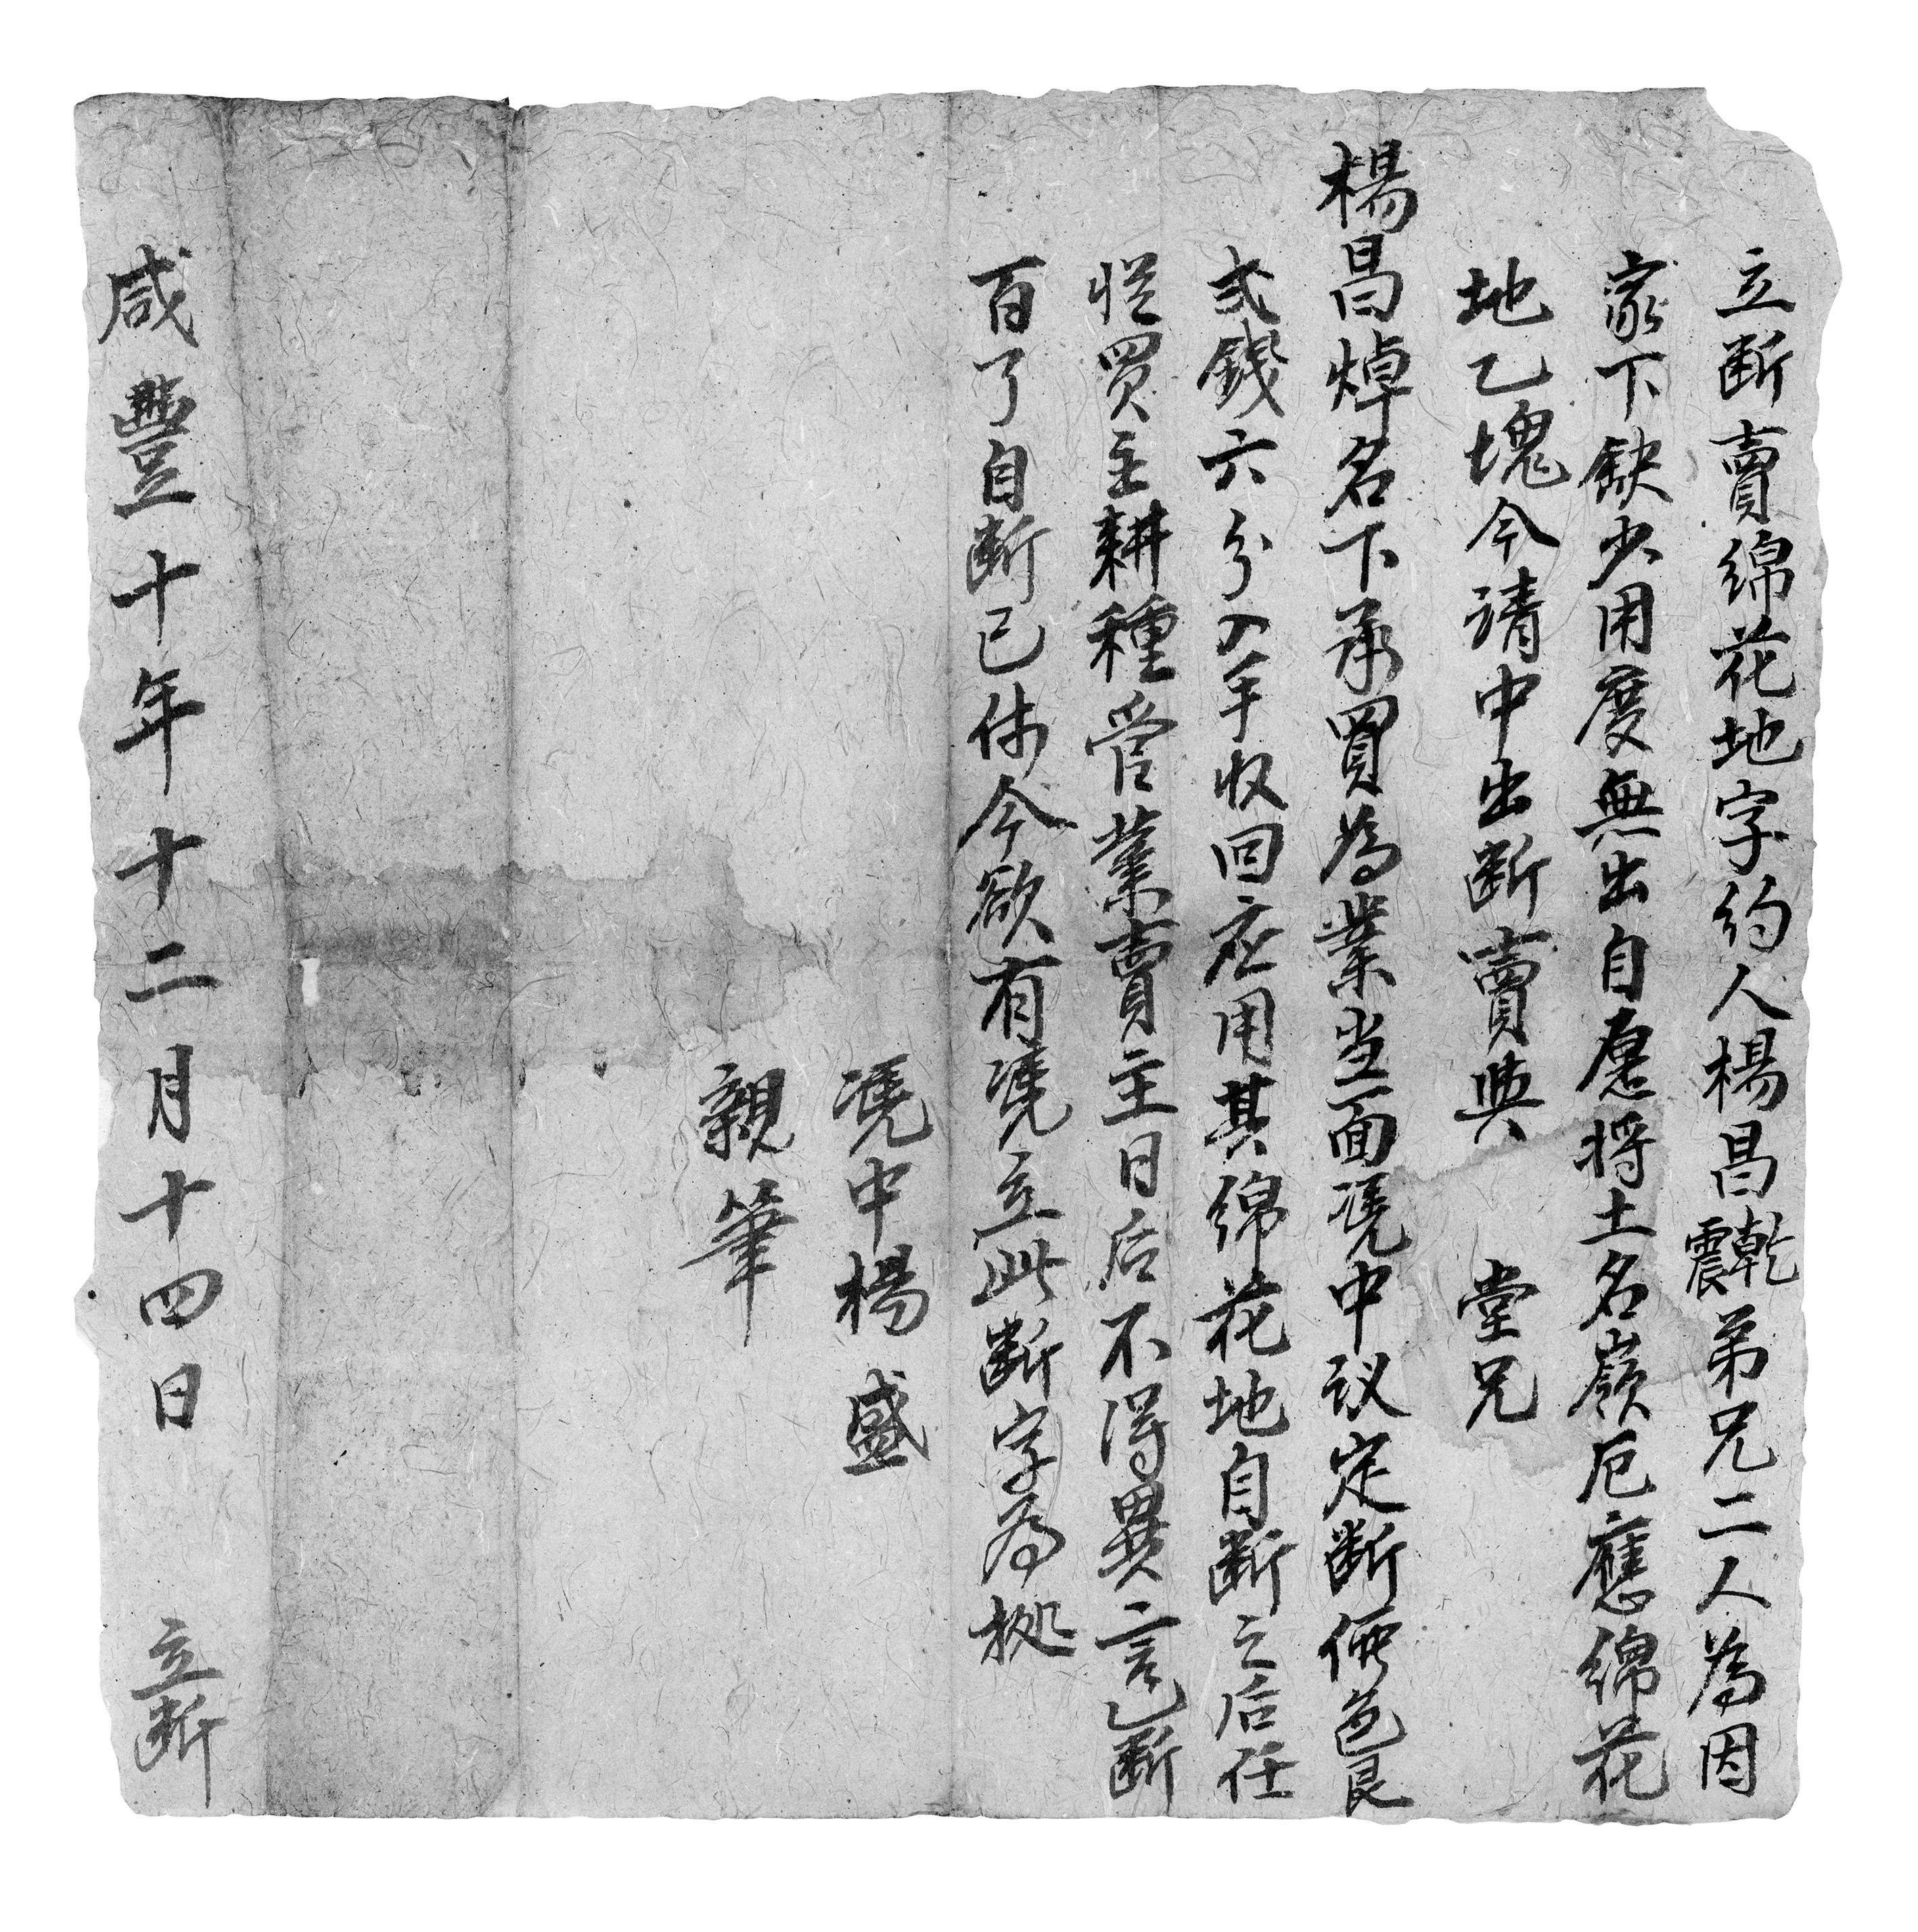 立断賣綿花地字約人楊昌乾震弟兄二人為因
家下缺少用度無出自愿将土名嶺厄應綿花
地乙塊今請中出断賣與 堂兄
楊昌焯名下承買為業当面凴中议定断價色艮
弍錢六分入手收回应用其綿花地自断之后任
怂買主耕種管業賣主日后不得異言乙断
百了自断已休今欲有凴立此断字為拠
凴中楊盛
親筆
咸豐十年十二月十四日 立断